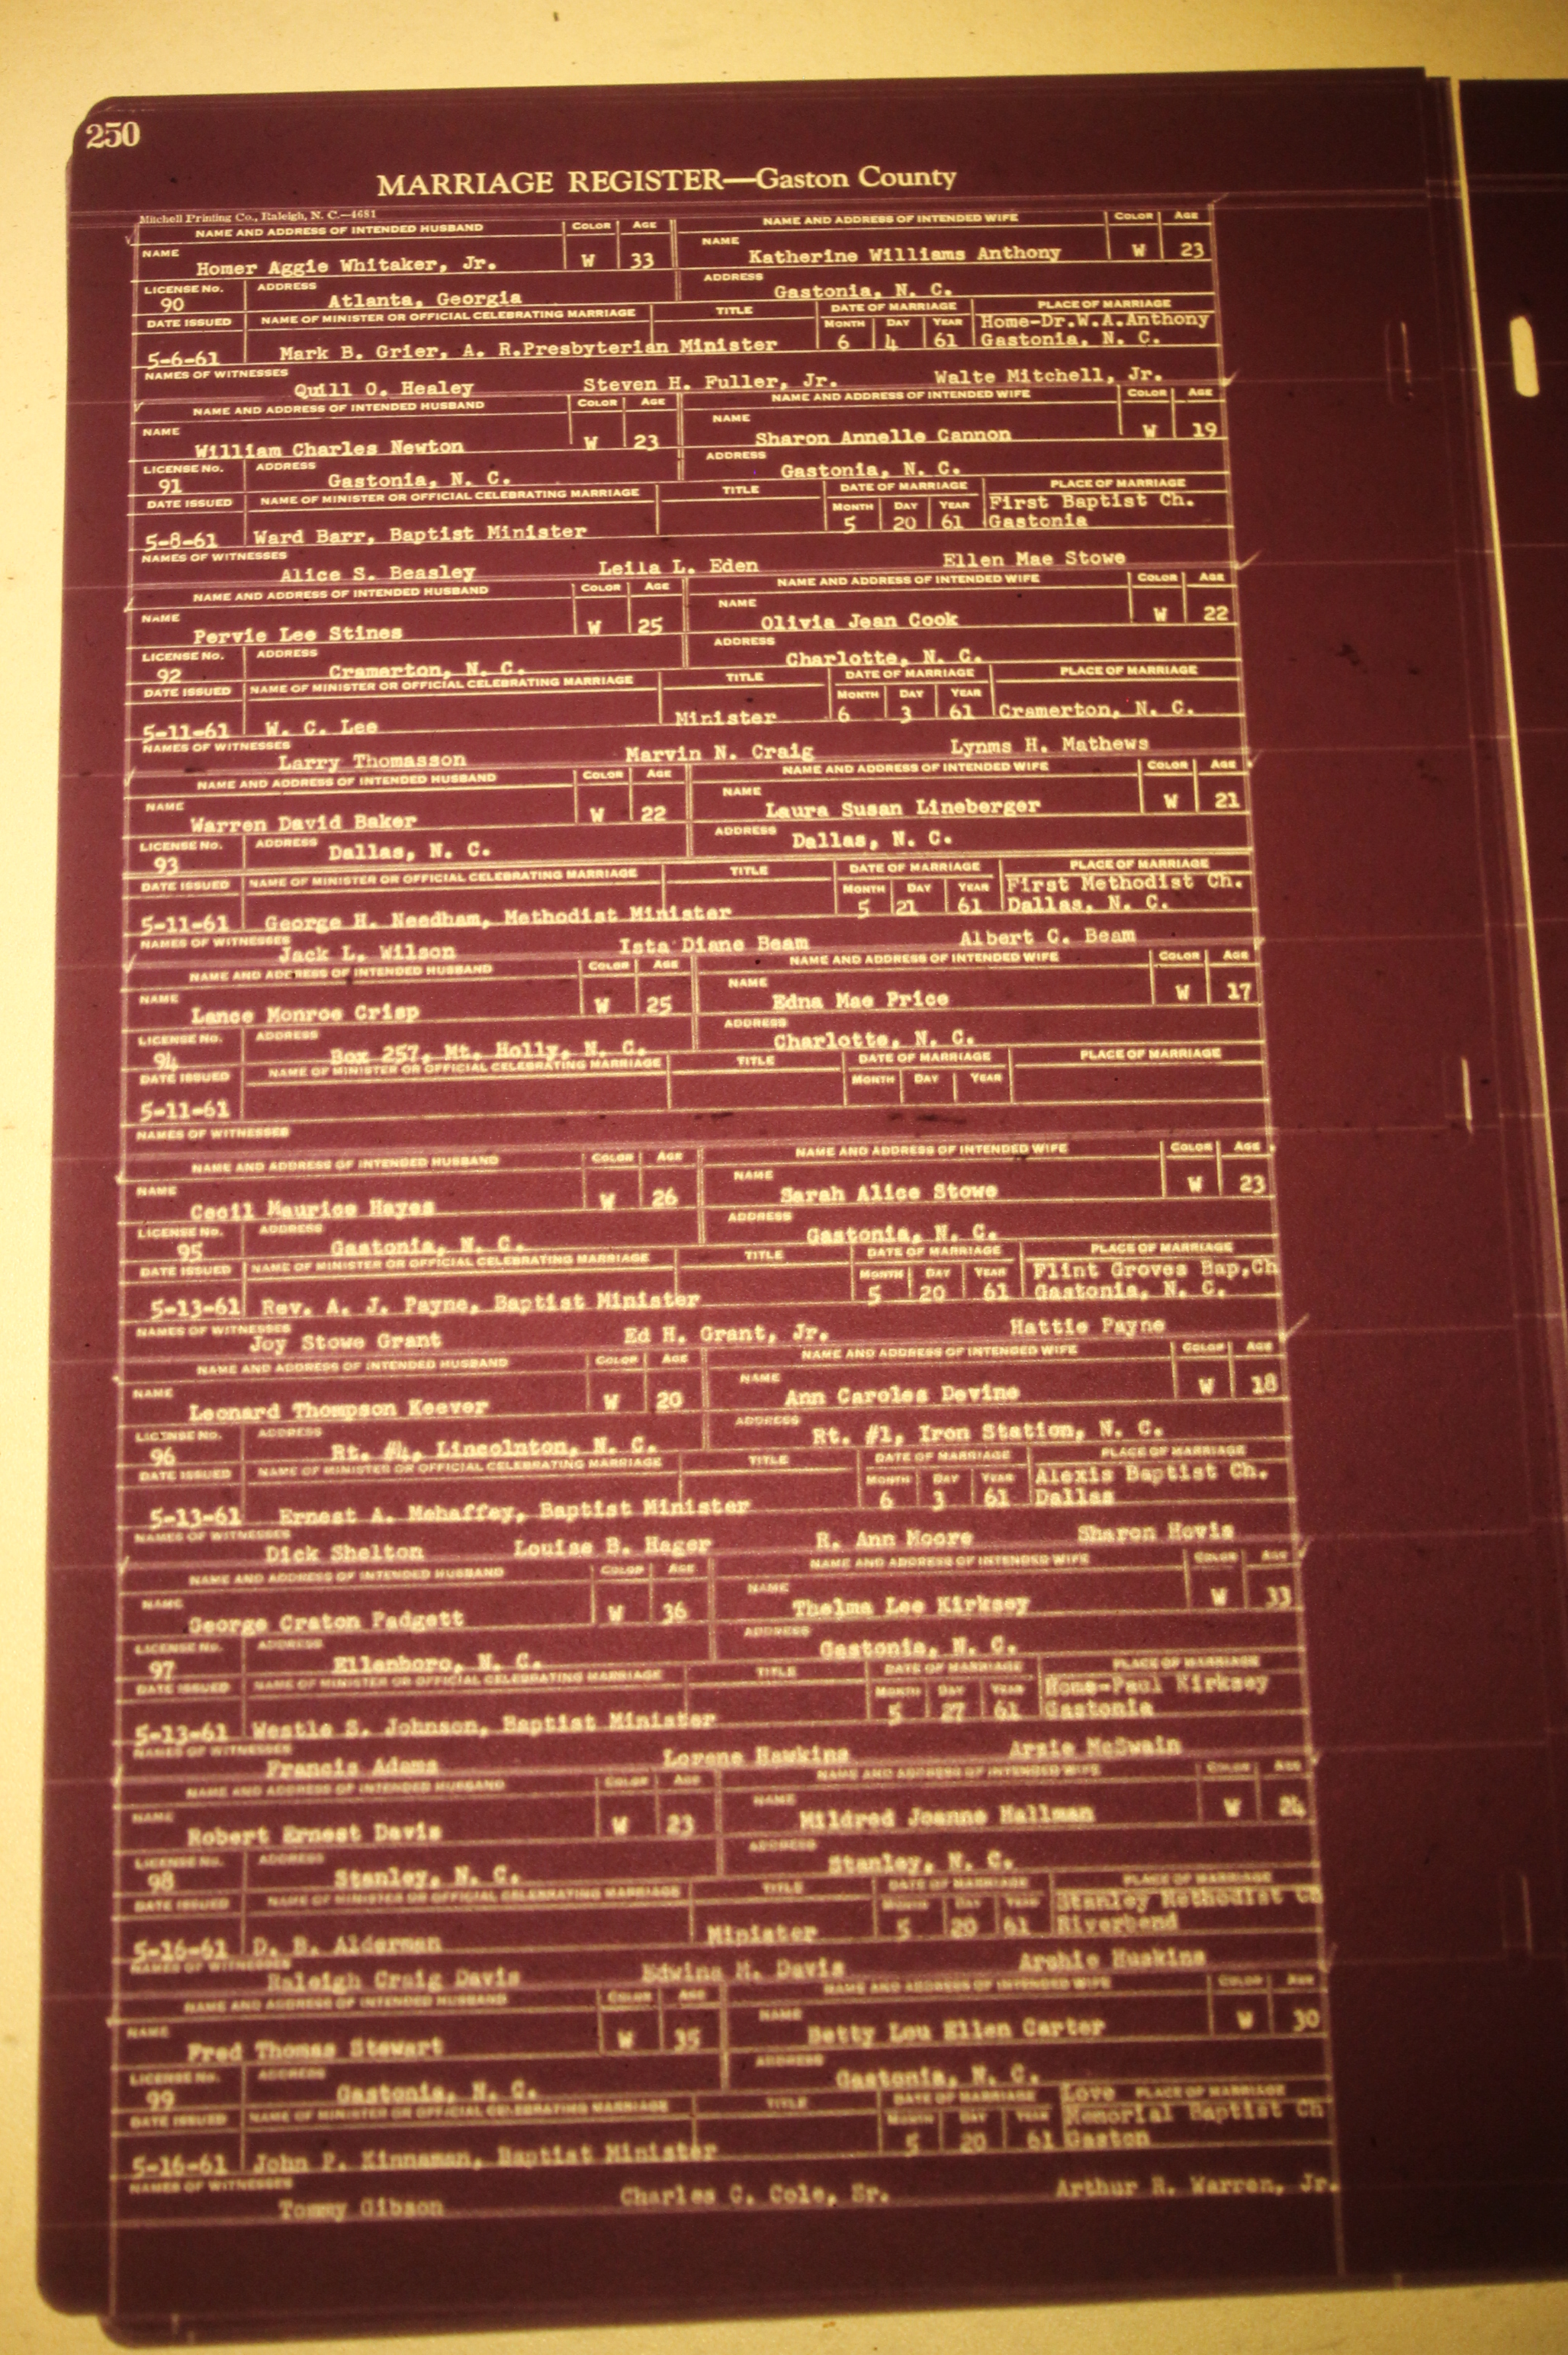 250
MARRIAGE REGISTER—Gaston County
Mitchell Printing Co., Raleigh, N. C.—4681
NAME AND ADDRESS OF INTENDED HUSBAND COLOR AGE NAME AND ADDRESS OF INTENDED WIFE COLOR AGE
NAME Homer Aggie Whitaker, Jr. W 33 NAME Katherine Williams Anthony W 23
LICENSE No. 90 ADDRESS Atlanta, Georgia ADDRESS Gastonia, N. C.
DATE ISSUED NAME OF MINISTER OR OFFICIAL CELEBRATING MARRIAGE TITLE DATE OF MARRIAGE PLACE OF MARRIAGE
MONTH DAY YEAR Home-Dr.W.A.Anthony
5-6-61 Mark B. Grier, A. R.Presbyterian Minister 6 4 61 Gastonia, N. C.
NAMES OF WITNESSES Quill O. Healey Steven H. Fuller, Jr. Walte Mitchell, Jr.
NAME AND ADDRESS OF INTENDED HUSBAND COLOR AGE NAME AND ADDRESS OF INTENDED WIFE COLOR AGE
NAME William Charles Newton W 23 NAME Sharon Annelle Cannon W 19
LICENSE No. 91 ADDRESS Gastonia, N. C. ADDRESS Gastonia, N. C.
DATE ISSUED NAME OF MINISTER OR OFFICIAL CELEBRATING MARRIAGE TITLE DATE OF MARRIAGE PLACE OF MARRIAGE
MONTH DAY YEAR First Baptist Ch.
5-8-61 Ward Barr, Baptist Minister 5 20 61 Gastonia
NAMES OF WITNESSES Alice S. Beasley Leila L. Eden Ellen Mae Stowe
NAME AND ADDRESS OF INTENDED HUSBAND COLOR AGE NAME AND ADDRESS OF INTENDED WIFE COLOR AGE
NAME Pervie Lee Stines W 25 NAME Olivia Jean Cook W 22
LICENSE No. 92 ADDRESS Cramerton, N. C. ADDRESS Charlotte, N. C.
DATE ISSUED NAME OF MINISTER OR OFFICIAL CELEBRATING MARRIAGE TITLE DATE OF MARRIAGE PLACE OF MARRIAGE
MONTH DAY YEAR
5-11-61 W. C. Lee Minister 6 3 61 Cramerton, N. C.
NAMES OF WITNESSES Larry Thomasson Marvin N. Craig Lynms H. Mathews
NAME AND ADDRESS OF INTENDED HUSBAND COLOR AGE NAME AND ADDRESS OF INTENDED WIFE COLOR AGE
NAME Warren David Baker W 22 NAME Laura Susan Lineberger W 21
LICENSE No. 93 ADDRESS Dallas, N. C. ADDRESS Dallas, N. C.
DATE ISSUED NAME OF MINISTER OR OFFICIAL CELEBRATING MARRIAGE TITLE DATE OF MARRIAGE PLACE OF MARRIAGE
MONTH DAY YEAR First Methodist Ch.
5-11-61 George H. Needham, Methodist Minister 5 21 61 Dallas, N. C.
NAMES OF WITNESSES Jack L. Wilson Ista Diane Beam Albert C. Beam
NAME AND ADDRESS OF INTENDED HUSBAND COLOR AGE NAME AND ADDRESS OF INTENDED WIFE COLOR AGE
NAME Lance Monroe Crisp W 25 NAME Edna Mae Price W 17
LICENSE No. 94 ADDRESS Box 257, Mt. Holly, N. C. ADDRESS Charlotte, N. C.
DATE ISSUED NAME OF MINISTER OR OFFICIAL CELEBRATING MARRIAGE TITLE DATE OF MARRIAGE PLACE OF MARRIAGE
MONTH DAY YEAR
5-11-61
NAMES OF WITNESSES
NAME AND ADDRESS OF INTENDED HUSBAND COLOR AGE NAME AND ADDRESS OF INTENDED WIFE COLOR AGE
NAME Cecil Maurice Hayes W 26 NAME Sarah Alice Stowe W 23
LICENSE No. 95 ADDRESS Gastonia, N. C. ADDRESS Gastonia, N. C.
DATE ISSUED NAME OF MINISTER OR OFFICIAL CELEBRATING MARRIAGE TITLE DATE OF MARRIAGE PLACE OF MARRIAGE
MONTH DAY YEAR Flint Groves Bap,Ch
5-13-61 Rev. A. J. Payne, Baptist Minister 5 20 61 Gastonia, N. C.
NAMES OF WITNESSES Joy Stowe Grant Ed H. Grant, Jr. Hattie Payne
NAME AND ADDRESS OF INTENDED HUSBAND COLOR AGE NAME AND ADDRESS OF INTENDED WIFE COLOR AGE
NAME Leonard Thompson Keever W 20 NAME Ann Caroles Devine W 18
LICENSE No. 96 ADDRESS Rt. #4, Lincolnton, N. C. ADDRESS Rt. #1, Iron Station, N. C.
DATE ISSUED NAME OF MINISTER OR OFFICIAL CELEBRATING MARRIAGE TITLE DATE OF MARRIAGE PLACE OF MARRIAGE
MONTH DAY YEAR Alexis Baptist Ch.
5-13-61 Ernest A. Mehaffey, Baptist Minister 6 3 61 Dallas
NAMES OF WITNESSES Dick Shelton Louise B. Hager R. Ann Moore Sharon Hovis
NAME AND ADDRESS OF INTENDED HUSBAND COLOR AGE NAME AND ADDRESS OF INTENDED WIFE COLOR AGE
NAME George Craton Padgett W 36 NAME Thelma Lee Kirksey W 33
LICENSE No. 97 ADDRESS Ellenboro, N. C. ADDRESS Gastonia, N. C.
DATE ISSUED NAME OF MINISTER OR OFFICIAL CELEBRATING MARRIAGE TITLE DATE OF MARRIAGE PLACE OF MARRIAGE
MONTH DAY YEAR Home-Paul Kirksey
5-13-61 Westle S. Johnson, Baptist Minister 5 27 61 Gastonia
NAMES OF WITNESSES Francis Adams Lorene Hawkins Arzie McSwain
NAME AND ADDRESS OF INTENDED HUSBAND COLOR AGE NAME AND ADDRESS OF INTENDED WIFE COLOR AGE
NAME Robert Ernest Davis W 23 NAME Mildred Joanne Hallman W 24
LICENSE No. 98 ADDRESS Stanley, N. C. ADDRESS Stanley, N. C.
DATE ISSUED NAME OF MINISTER OR OFFICIAL CELEBRATING MARRIAGE TITLE DATE OF MARRIAGE PLACE OF MARRIAGE
MONTH DAY YEAR Stanley Methodist Ch
5-16-61 D. B. Alderman Minister 5 20 61 Riverbend
NAMES OF WITNESSES Raleigh Craig Davis Edwina M. Davis Archie Huskins
NAME AND ADDRESS OF INTENDED HUSBAND COLOR AGE NAME AND ADDRESS OF INTENDED WIFE COLOR AGE
NAME Fred Thomas Stewart W 35 NAME Betty Lou Ellen Carter W 30
LICENSE No. 99 ADDRESS Gastonia, N. C. ADDRESS Gastonia, N. C.
DATE ISSUED NAME OF MINISTER OR OFFICIAL CELEBRATING MARRIAGE TITLE DATE OF MARRIAGE Love PLACE OF MARRIAGE
MONTH DAY YEAR Memorial Baptist Ch
5-16-61 John P. Kinnaman, Baptist Minister 5 20 61 Gaston
NAMES OF WITNESSES Tommy Gibson Charles C. Cole, Sr. Arthur R. Warren, Jr.